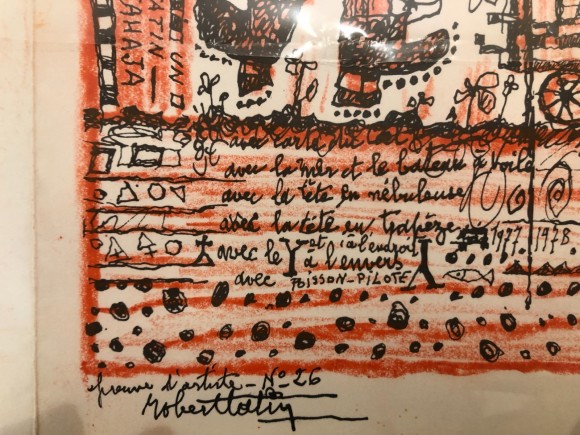 UND
TATIN —
AHAJA
avec carte du
avec la mer et le bateau à voile
avec la tête en nébuleuse
avec la tête en trapèze 1977-1978
avec le Y à l'endroit
à l'envers
avec POISSON-PILOTE
épreuve d'artiste - No 26
Robert Tatin